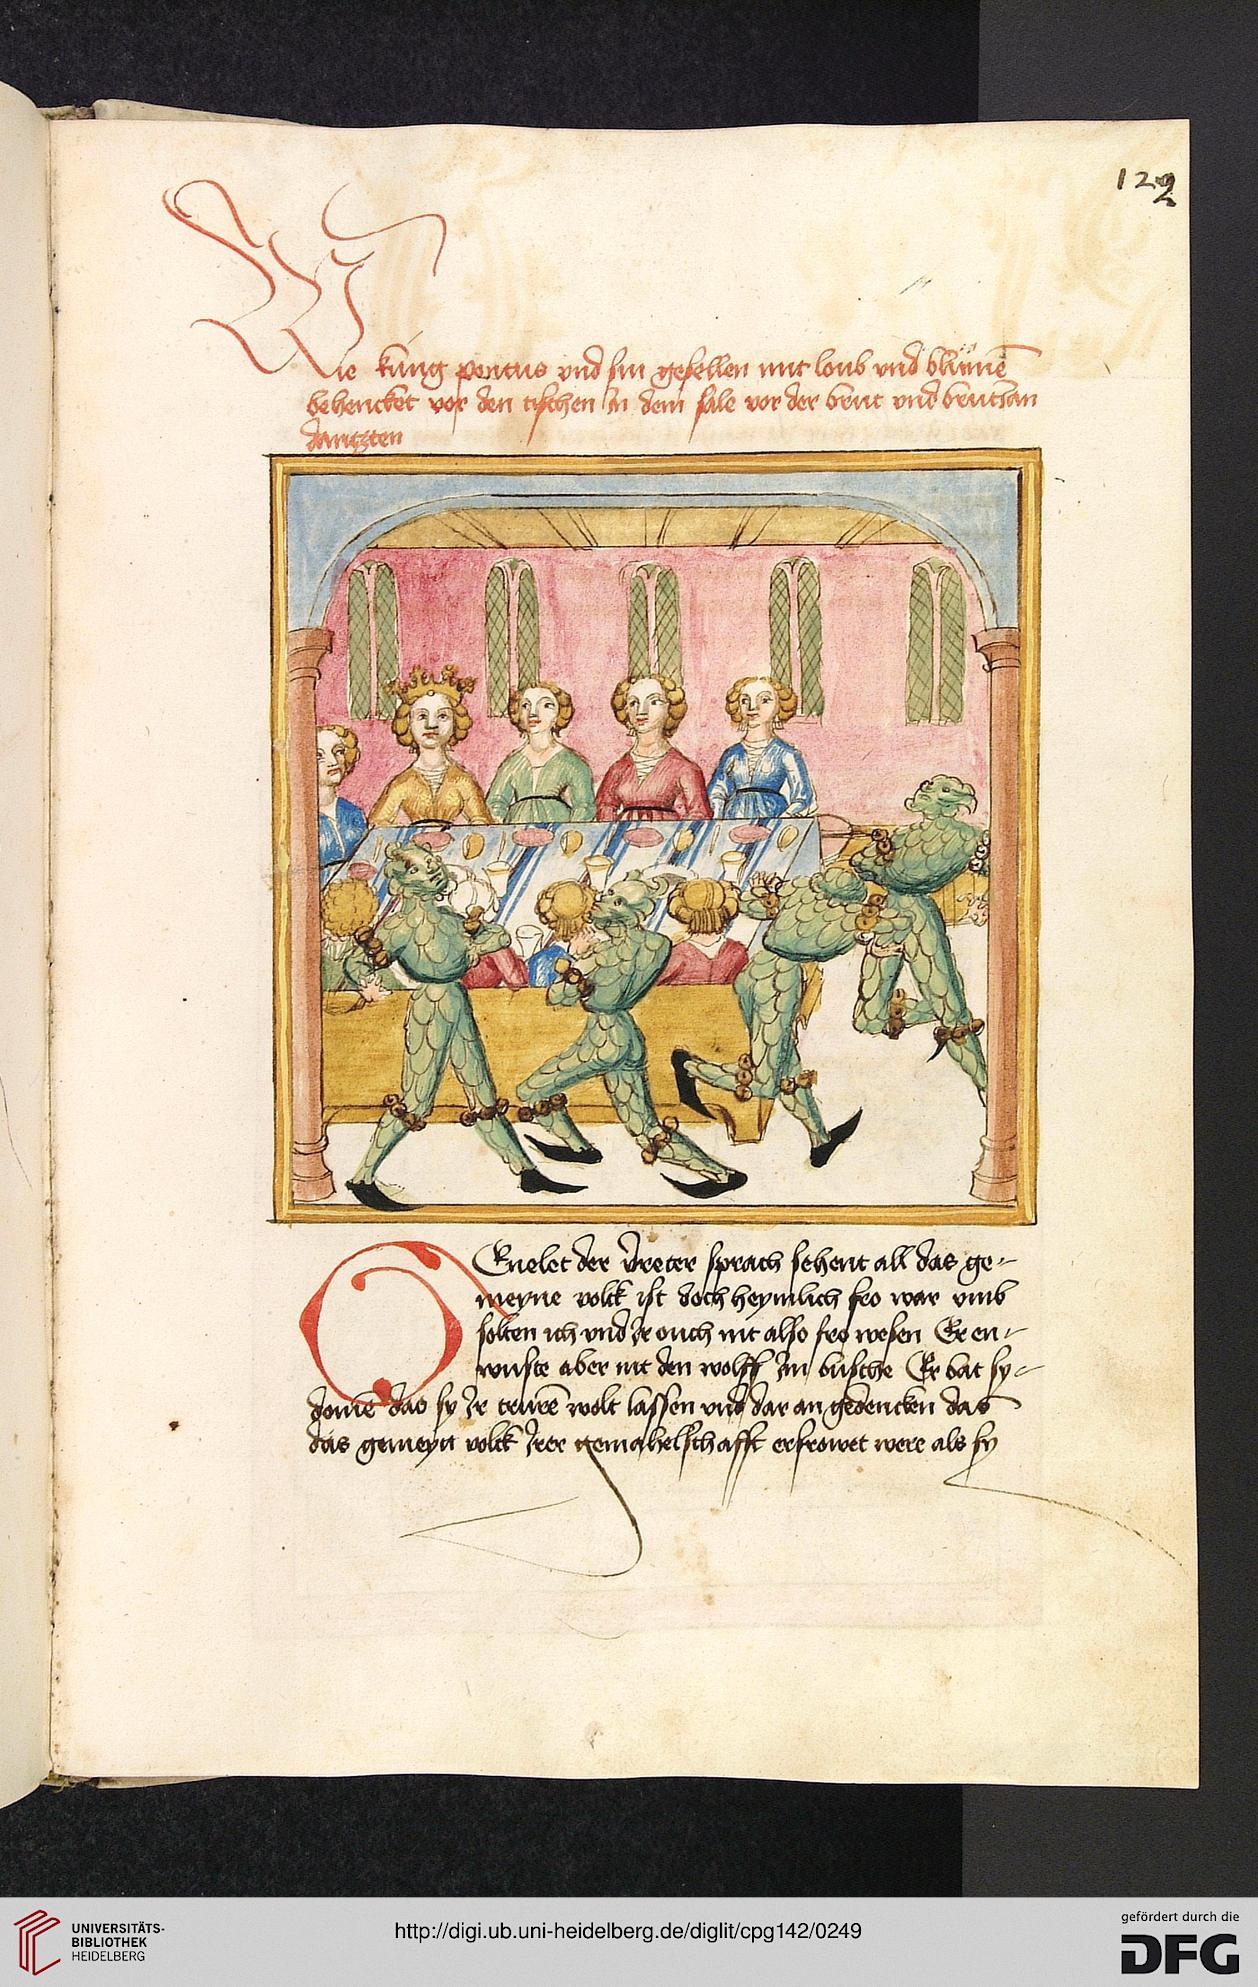 122
Wie kúng pontus vnd sin gesellen mit loub vnd blůmē
behencket vor den tischen In dem sale vor der brut vnd brutsan
dantzten
Genelet der vreter sprach sehent all das ge-
meyne volck ist doch heymlich fro war vmb
solten ich vnd Ir ouch nit also fro wesen Er en-
wuste aber nit den wolff Im busche Er bat sy-
donie das sy Ir trurē wolt lassen vnd dar an gedencken das
das gemeyn volck Irer gemahelschafft erfrowet were als sy
UNIVERSITÄTS-
BIBLIOTHEK
HEIDELBERG
http://digi.ub.uni-heidelberg.de/diglit/cpg142/0249
gefördert durch die
DFG